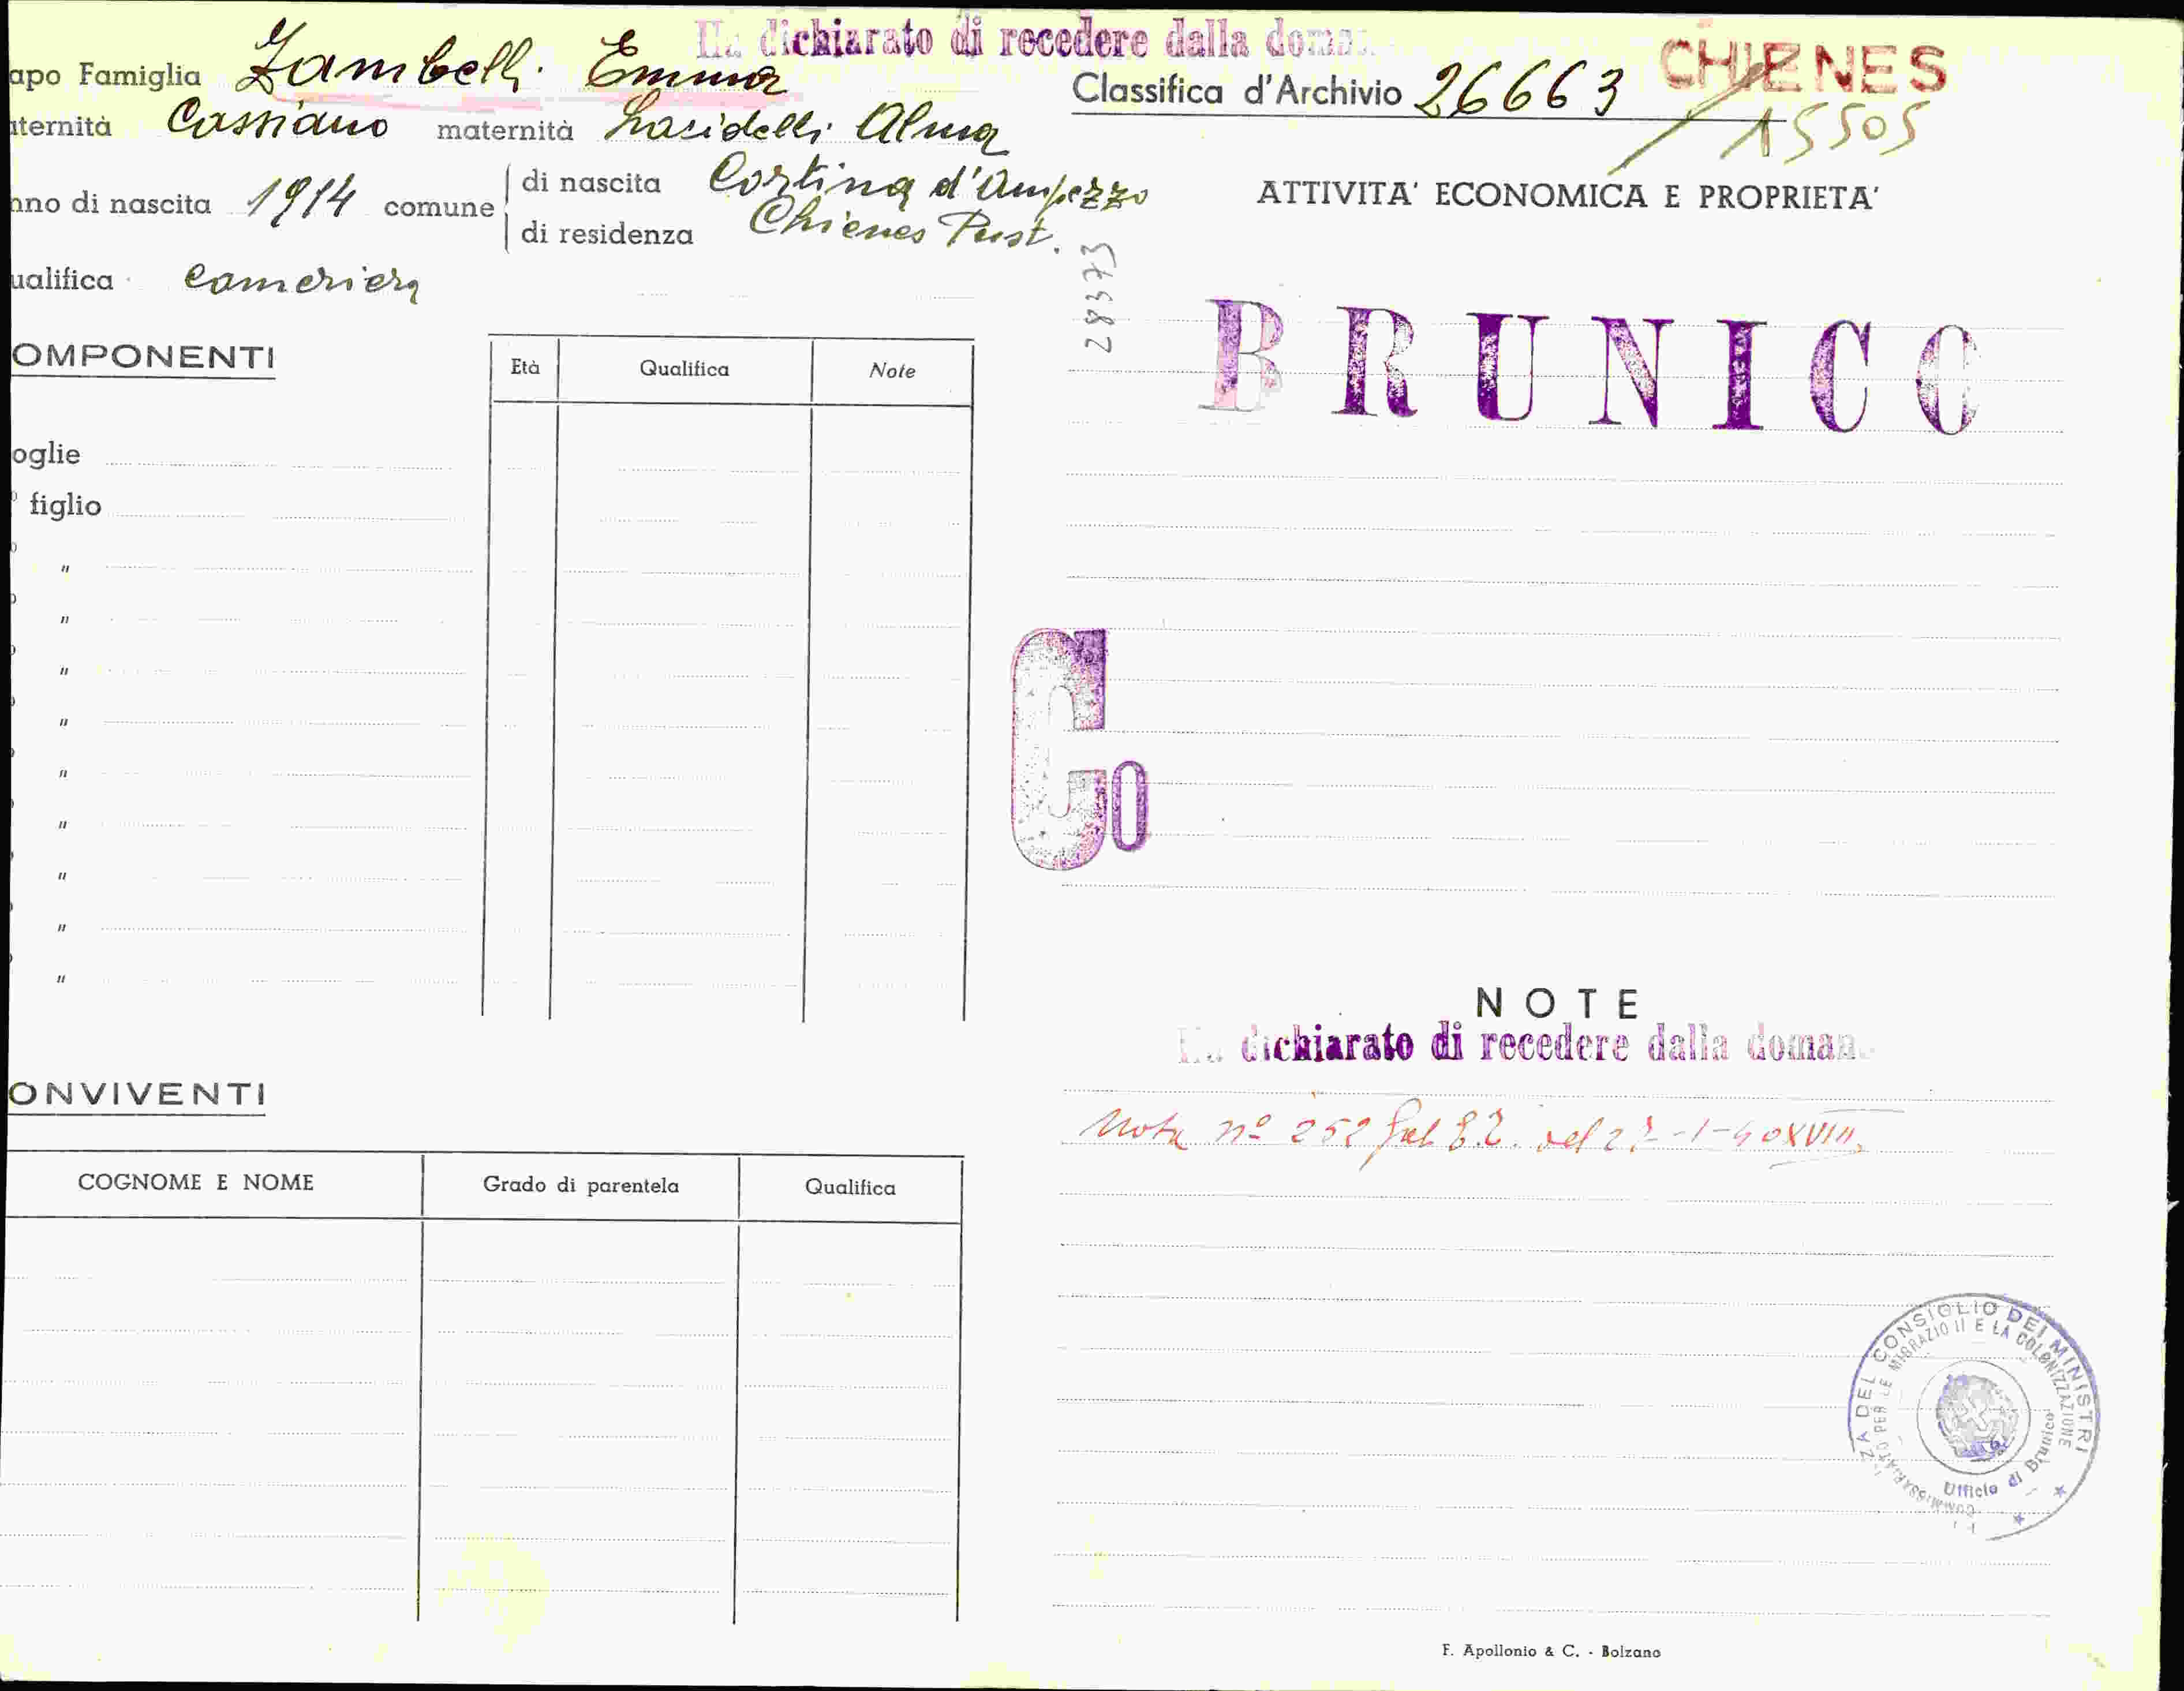 dichiarato di recedere dalla doman
apo Famiglia Zambelli Emma
Classifica d'Archivio 26663 CHIENES
15505
aternità Cassiano maternità Lacidelli Alma
nno di nascita 1914 comune di nascita Cortina d'Ampezzo
di residenza Chienes Pust.
ualifica cameriera
ATTIVITA' ECONOMICA E PROPRIETA'
28373
BRUNICO
OMPONENTI
Età Qualifica Note
oglie
figlio
"
"
"
"
"
"
"
"
"
Co
NOTE
dichiarato di recedere dalla doman
Nota nº 252 del -1-40 XVIII
ONVIVENTI
COGNOME E NOME Grado di parentela Qualifica
ZA DEL CONSIGLIO DEI MINISTRI
COMMISSARIATO PER LE MIGRAZIONI E LA COLONIZZAZIONE
Ufficio di Brunico
F. Apollonio & C. - Bolzano